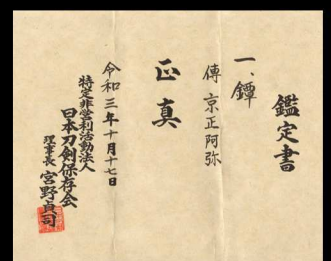 鑑定書
一、鐔
傳 京正阿弥
正真
令和三年十月十七日
特定非営利活動法人
日本刀剣保存会
理事長 宮野貞司